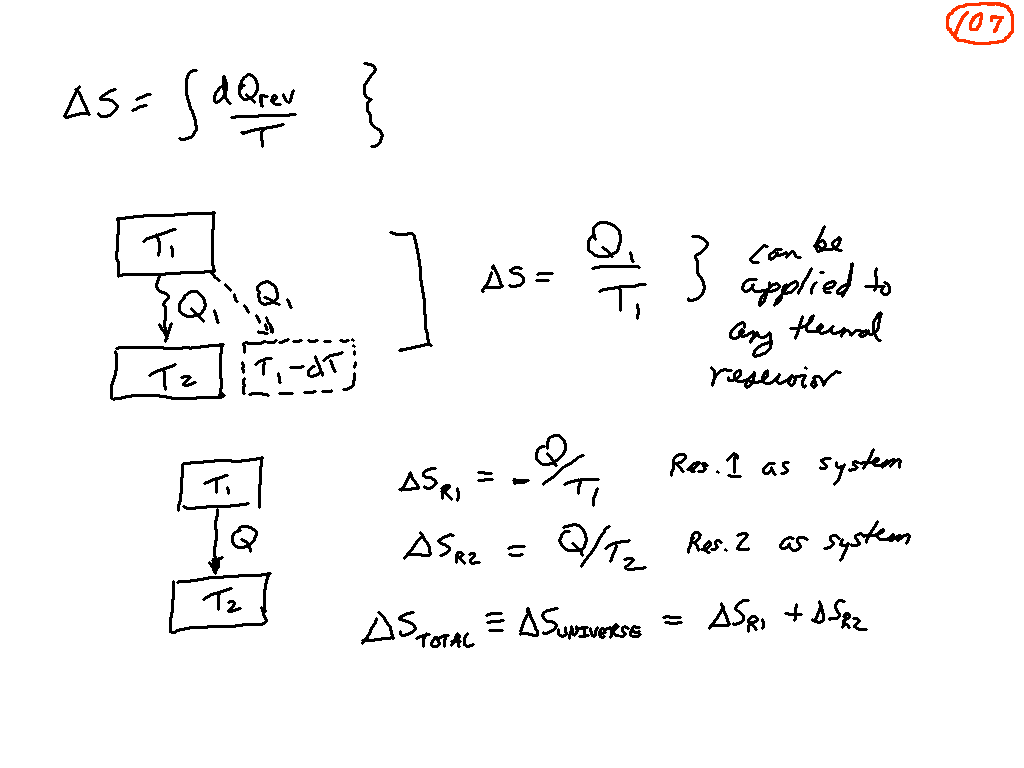 107
ΔS = ∫ dQrev / T }
T₁
Q₁ Q₁
T₂ T₁-dT
] ΔS = Q₁ / T₁ } can be
applied to
any thermal
reservoir
T₁
Q
T₂
ΔS_R1 = - Q/T₁ Res. 1 as system
ΔS_R2 = Q/T₂ Res. 2 as system
ΔS_TOTAL ≡ ΔS_UNIVERSE = ΔS_R1 + ΔS_R2